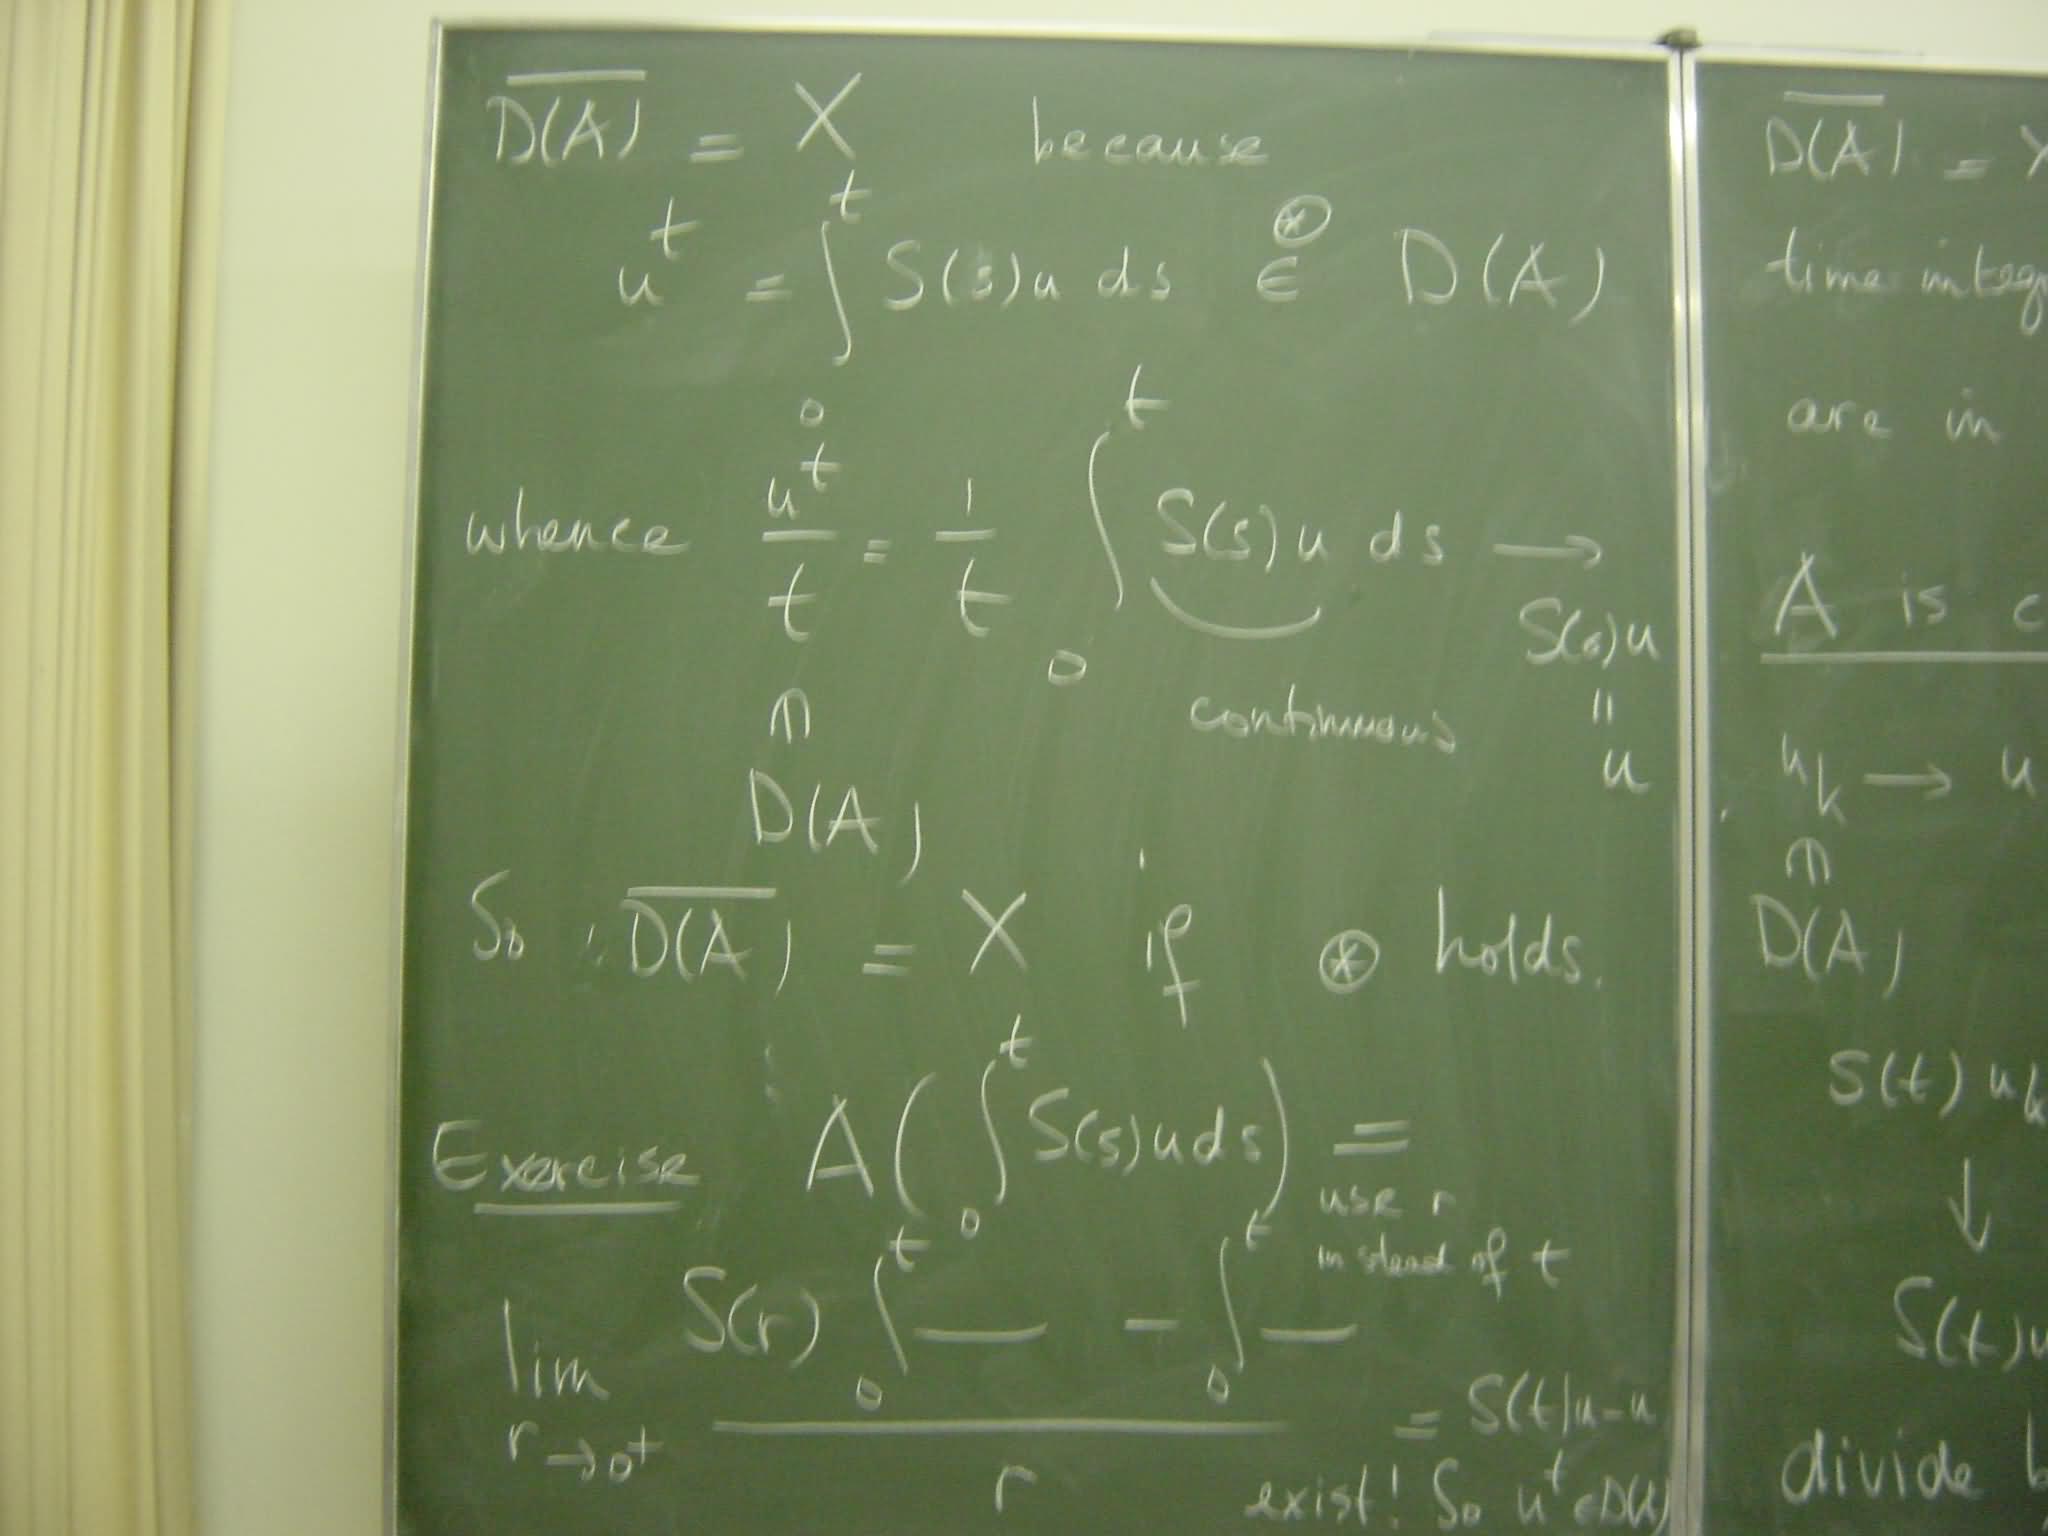 D(A)‾ = X because
u^t = ∫₀^t S(s)u ds ∈^⊛ D(A)
whence u^t/t = 1/t ∫₀^t S(s)u ds → S(0)u
continuous
||
u
∩
D(A)
So : D(A)‾ = X if ⊛ holds.
Exercise A(∫₀^t S(s)u ds) =
use r
instead of t
lim r→0+ (S(r) ∫₀^t — - ∫₀^t —)/r = S(t)u-u
exist! So u^t ∈ D(A)
D(A)‾ = X
time
are in
A is
u_k → u
∩
D(A)
S(t) u_k
↓
S(t)u
divide